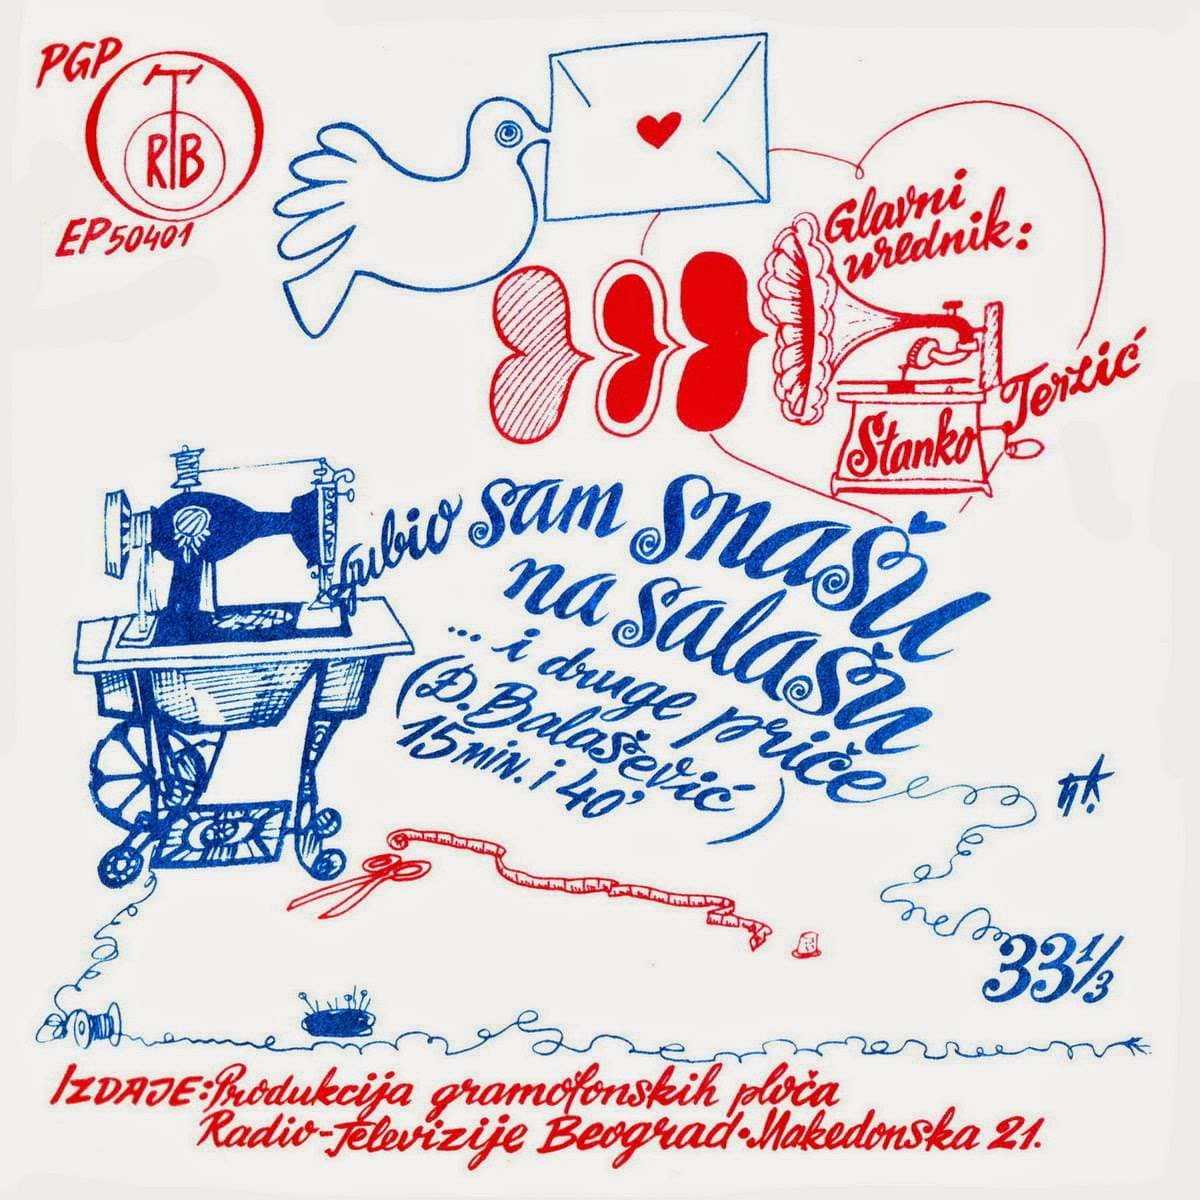 PGP
RTB
EP 50401
Glavni
urednik:
Stanko Terzić
Ljubio sam snašu
na salašu
... i druge priče
(Đ. Balašević)
15 min. i 40'
33 1/3
IZDAJE: Produkcija gramofonskih ploča
Radio-Televizije Beograd • Makedonska 21.